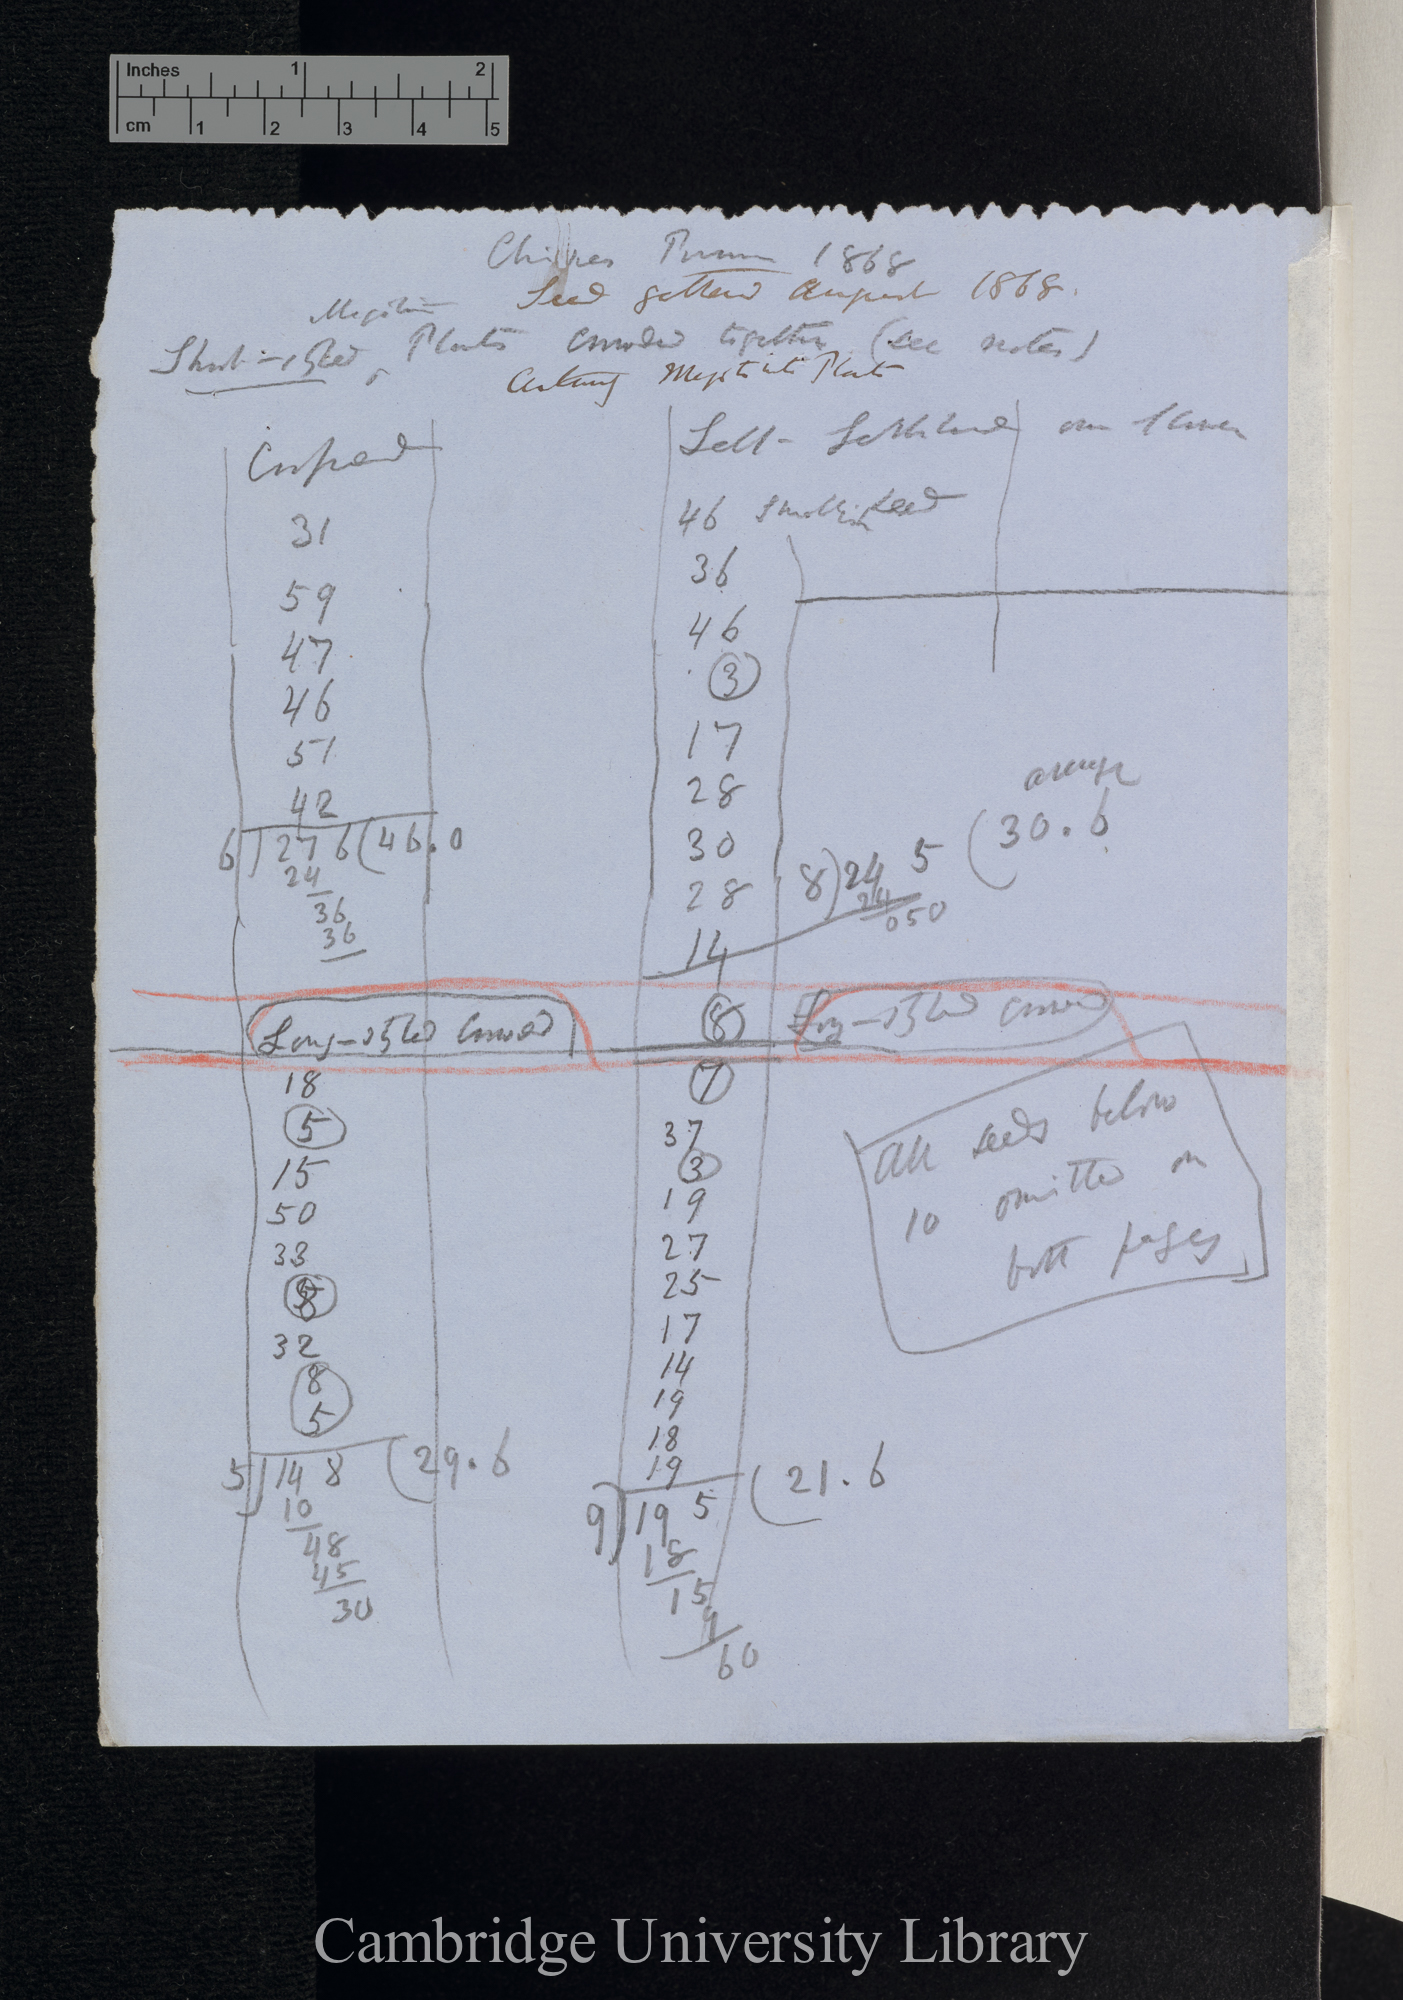 Inches 1 2
cm 1 2 3 4 5
Chinese Primu 1868
Seed gathered August 1868.
Short-styled Plants crossed together (see notes)
Certainly Plants
Crossed
31
59
47
46
51
42
6) 276 (46.0
24
36
36
Long-styled crossed
18
5
15
50
33
8
32
8
5
5) 148 (29.6
10
48
45
30
Self-fertilised own flower
46 smallish seed
36
46
3
17
28
30
28
14
8
7
37
3
19
27
25
17
14
19
18
19
9) 195 (21.6
18
15
9
60
average
8) 245 (30.6
24
050
Long-styled crossed
All seeds below
10 omitted on
both pages
Cambridge University Library